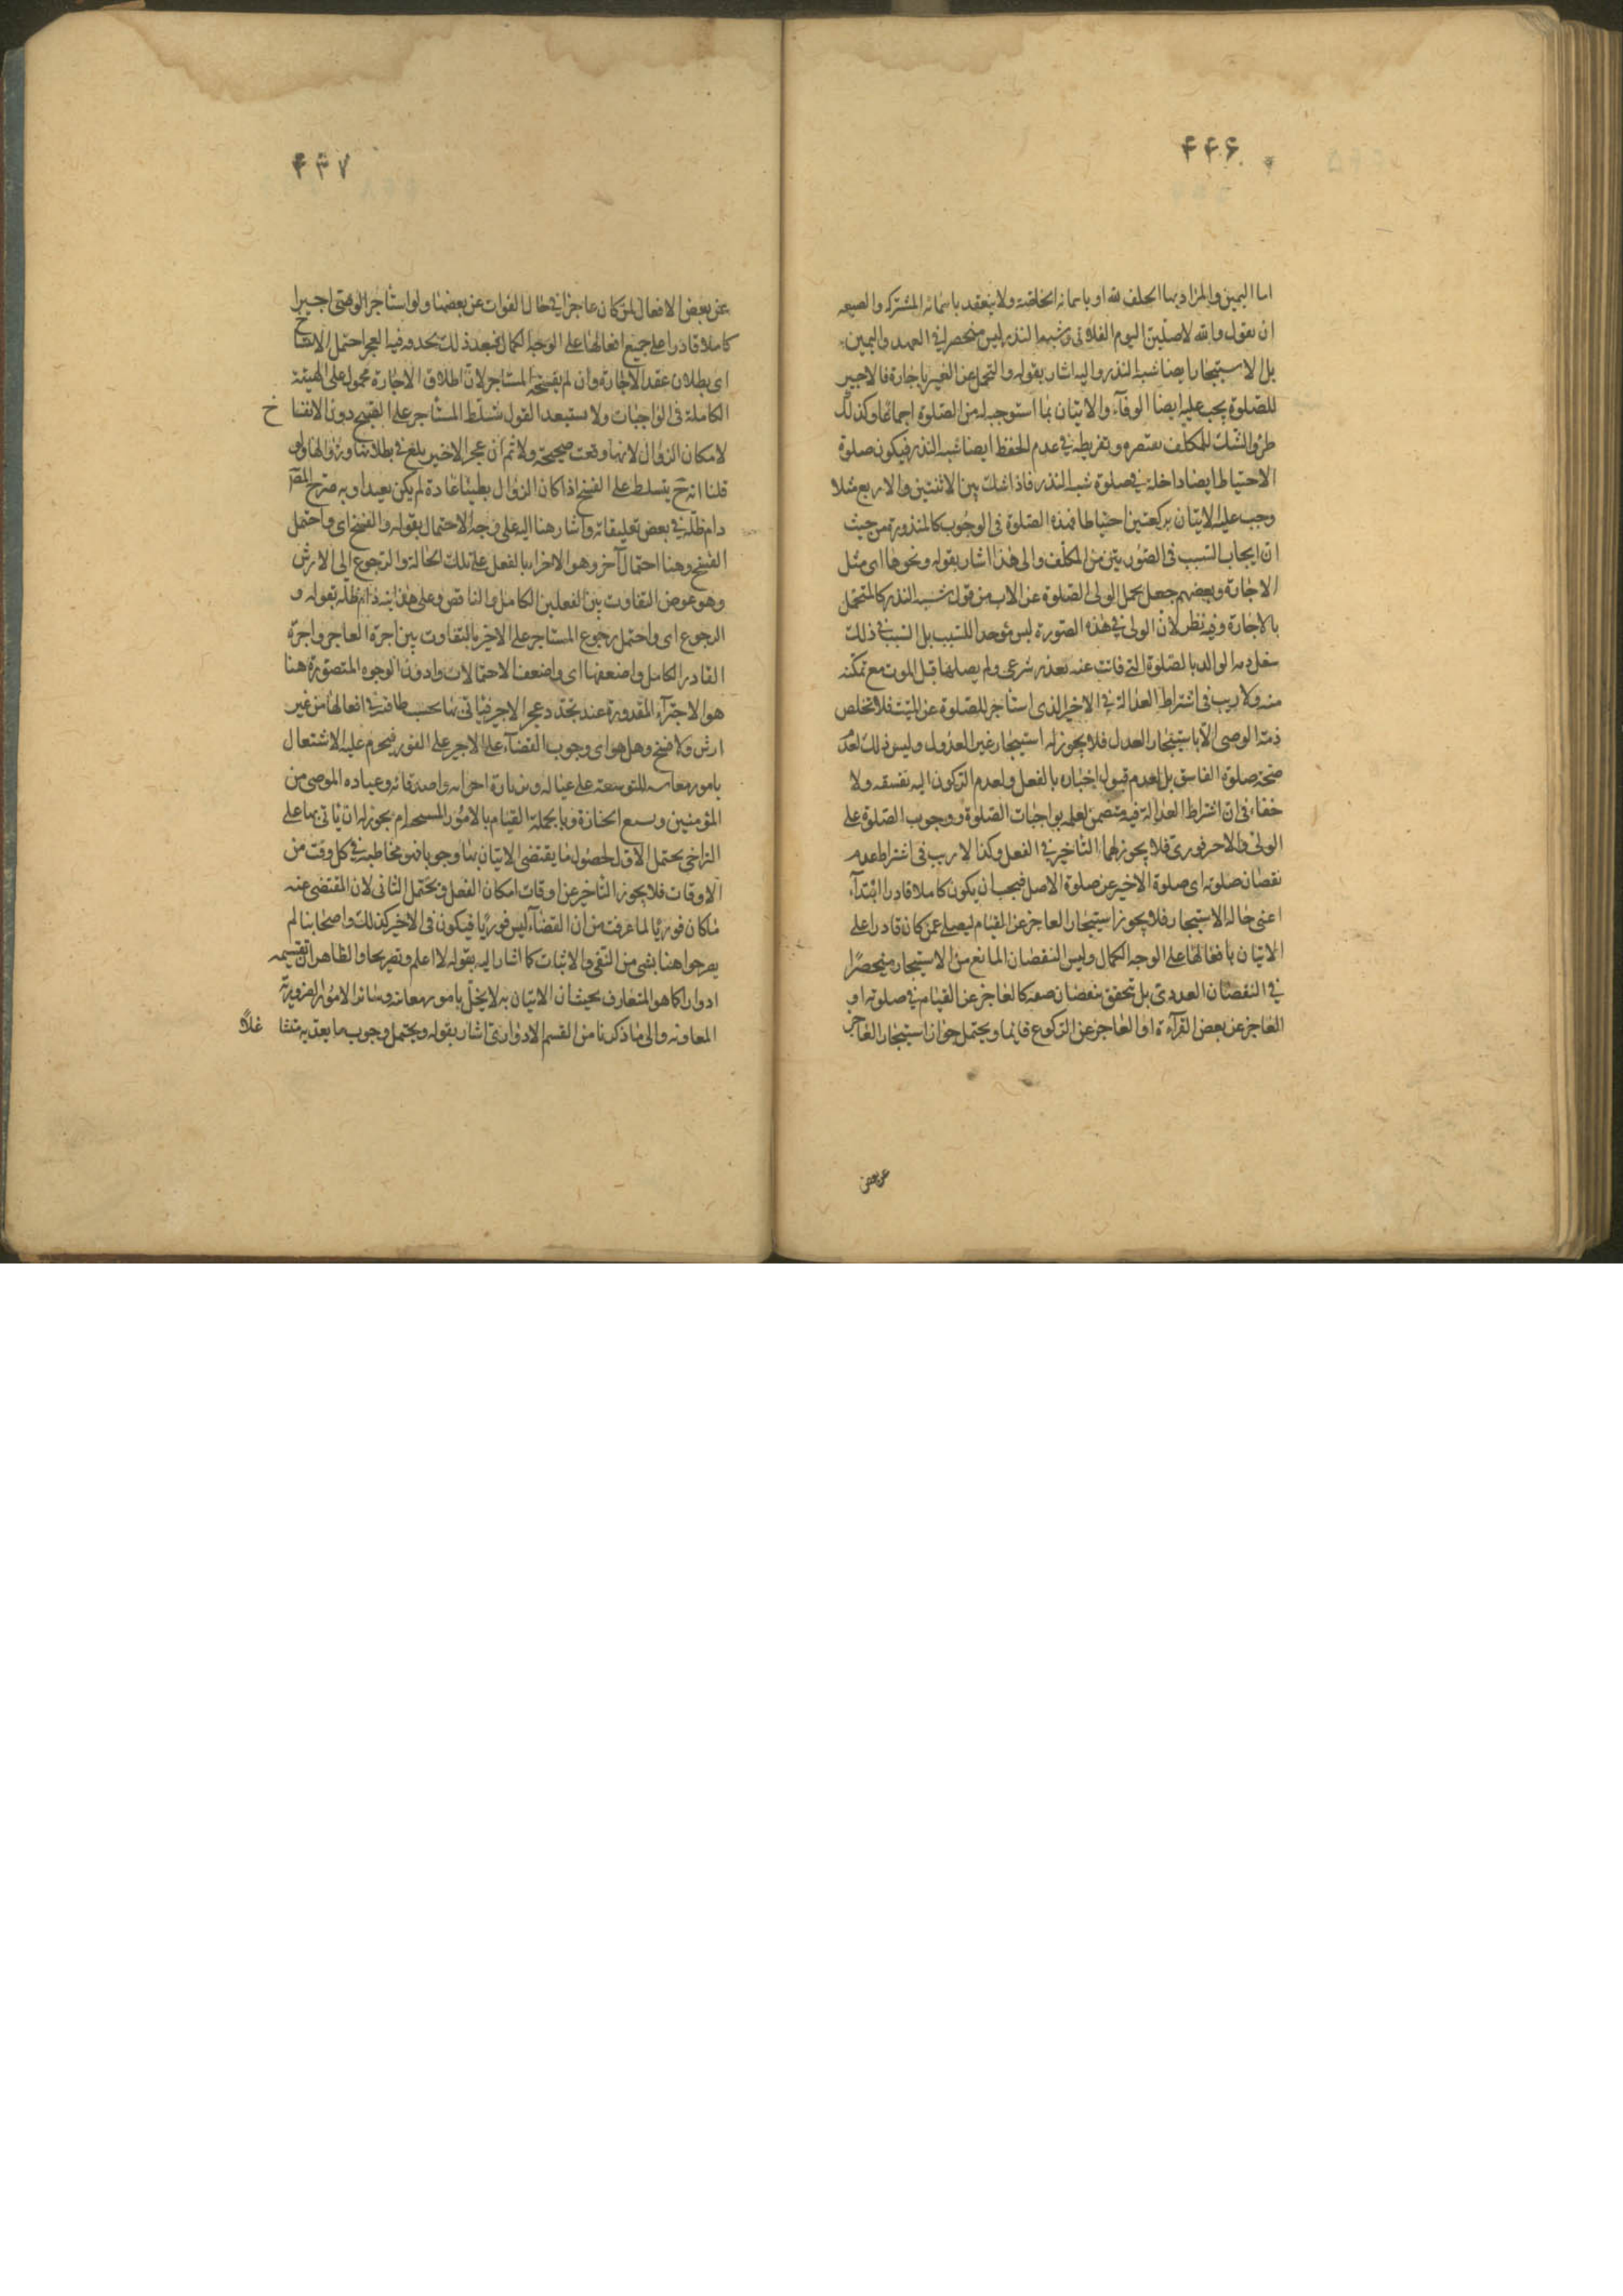 ۴۴۶
اما اليمين والمراد بها الحلف لله او باسمائه الخاصة ولا ينعقد باسمائه المشتركه والصيغه
ان يقول والله لاصلين اليوم الفلانى وشبه النذر ليس منحصرا في العهد واليمين
بل الاستيجار ايضا شبه النذر واليه اشار بقوله والتحمل عن الغير باجارة فالاجير
للصلوة يجب عليه ايضا الوفآء والايتان بما استوجب له من الصلوة اجماعا وكذلك
طرو الشك للمكلف بتقصيره وتفريطه في عدم الحفظ ايضا شبه النذر فيكون صلوة
الاحتياط ايضا داخلة في صلوة شبه النذر فاذا شك بين الاثنتين والاربع مثلا
وجب عليه الايتان بركعتين احتياطا فهذه الصلوة فى الوجوب كالمنذورة من حيث
ان ايجاب السبب فى الصورتين من المكلف والى هذا اشار بقوله ونحوها اى مثل
الاجارة وبعضهم جعل تحمل الولى الصلوة عن الاب من قول شبه النذر كالمتحمل
بالاجارة وفيه نظر لان الولى في هذه الصورة ليس موجدا للسبب بل السبب في ذلك
شغل ذمه الوالد بالصلوة التى فاتت عنه بعذر شرعى ولم يصلها قبل الموت مع تمكنه
منه ولا ريب فى اشتراط العدالة في الاجير الذى استاجر للصلوة عن الميت فلا تخلص
ذمة الوصى الا باستيجار العدل فلا يجوز له استيجار غير العدول وليس ذلك لعدم
صحة صلوة الفاسق بل لعدم قبول اخباره بالفعل ولعدم الركون اليه بفسقه ولا
خفاء فى ان اشتراط العدالة فيه متضمن لعلمه بواجبات الصلوة ووجوب الصلوة على
الولى والاجير فورى فلا يجوز لهما التاخير في الفعل وكذا لا ريب فى اشتراط عدم
نقصان صلوته اى صلوة الاجير عن صلوة الاصل فيجب ان يكون كاملا قادرا ابتدآء
اعنى حالة الاستيجار فلا يجوز استيجار العاجز عن القيام ليصلى عمن كان قادرا على
الاتيان بافعالها على الوجه الكمال وليس النقصان المانع من الاستيجار منحصرا
في النقصان العددى بل تحقق بنقصان صفه كالعاجز عن القيام في صلوته او
العاجز عن بعض القرآءة او العاجز عن الركوع قائما ويحتمل جواز استيجار العاجز
عن بعض
۴۴۷
عن بعض الافعال لمن كان عاجزا في حال الفوات عن بعضها ولو استاجر الوصى اجيرا
كاملا قادرا على جميع افعالها على الوجه الكمال فبعد ذلك تجدد فيه العجز احتمل الانفساخ
اى بطلان عقد الاجارة وان لم يفسخه المستاجر لان اطلاق الاجارة محمول على الهيئة
الكاملة فى الواجبات ولا يستبعد القول بتسلط المستأجر على الفسخ دون الانفساخ
لامكان الزوال لانها وقعت صحيحة ولا ثم ان عجز الاجير بلغ في بطلانها وزوالها ولو
قلنا انه ح يتسلط على الفسخ اذا كان الزوال بطيئا عادة لم يكن بعيدا وبه صرح المصّ
دام ظله في بعض تعليقاته واشار هنا اليه على وجه الاحتمال بقوله والفسخ اى واحتمل
الفسخ وهنا احتمال آخر وهو الاجزاء بالفعل على تلك الحالة والرجوع الى الارش
وهو عوض التفاوت بين الفعلين الكامل والناقص وعلى هذا نبه دام ظله بقوله و
الرجوع اى واحتمل رجوع المستاجر على الاجير بالتفاوت بين اجرة العاجز واجرة
القادر الكامل واضعفها اى واضعف الاحتمالات وادون الوجوه المتصورة هنا
هو الاجتزآء المقدورة عند تجدد عجز الاجير فياتى بها بحسب طاقته في افعالها من غير
ارش ولا فسخ وهل هو اى وجوب القضآء على الاجير على الفور فيحرم عليه الاشتغال
بامور معاشه للتوسعة على عياله وزيارة اخوانه واصدقائه وعياده الموصى من
المؤمنين وتشييع الجنازة وبالجملة القيام بالامور المستحبه ام يجوز له ان ياتى بها على
التراخى يحتمل الاول لحصول ما يقتضى الايتان بها وجوبا فهو مخاطب به في كل وقت من
الاوقات فلا يجوز التاخير عن اوقات امكان الفعل ويحتمل الثانى لان المقتضى عنه
ماكان فوريا لما عرفت من ان القضآء ليس فوريا فيكون فى الاجير كذلك واصحابنا لم
يصرحوا هنا بشى من النفى والاثبات كما اشار اليه بقوله لا اعلم فيه تصريحا والظاهر ان تقسيمه
ادوارا كما هو المتعارف بحيث ان الايتان به لا يخل بامور معاشه وسائر الامور الضرورية
المعاونه والى ما ذكرنا من القسم الادوارى اشار بقوله ويحتمل وجوب ما يعد به متشاغلا